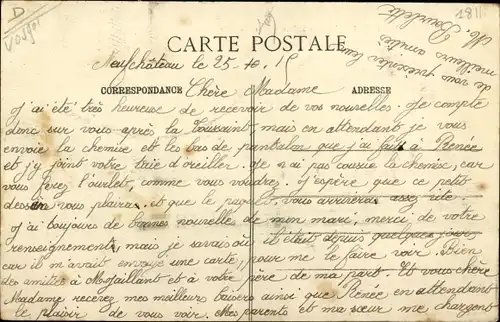 D
Vosges
1811
CARTE POSTALE
Neufchâteau le 25. 10. 15
CORRESPONDANCE
ADRESSE
Chère Madame
J'ai été très heureuse de recevoir de vos nouvelles. Je compte
donc sur vous après la Toussaint, mais en attendant je vous
envoie la chemise et les bas de pantalon que j'ai fait à Renée
et j'y joint votre taie d'oreiller. Je n'ai pas cousue la chemise, car
vous ferez l'ourlet, comme vous voudrez. J'espère que ce petit
dessin vous plaira. et que le paquet vous arrivera assez vite.
J'ai toujours de bonnes nouvelles de mon mari, merci de votre
renseignement, mais je savais où il était depuis quelques jours
car il m'avait envoyé une carte, pour me le faire voir. Bien
des amitiés à et à votre père de ma part. Et vous chère
Madame recevez mes meilleurs baisers ainsi que Renée en attendant
le plaisir de vous voir. Mes parents et ma sœur me chargent
de vous
meilleures amitiés
M.